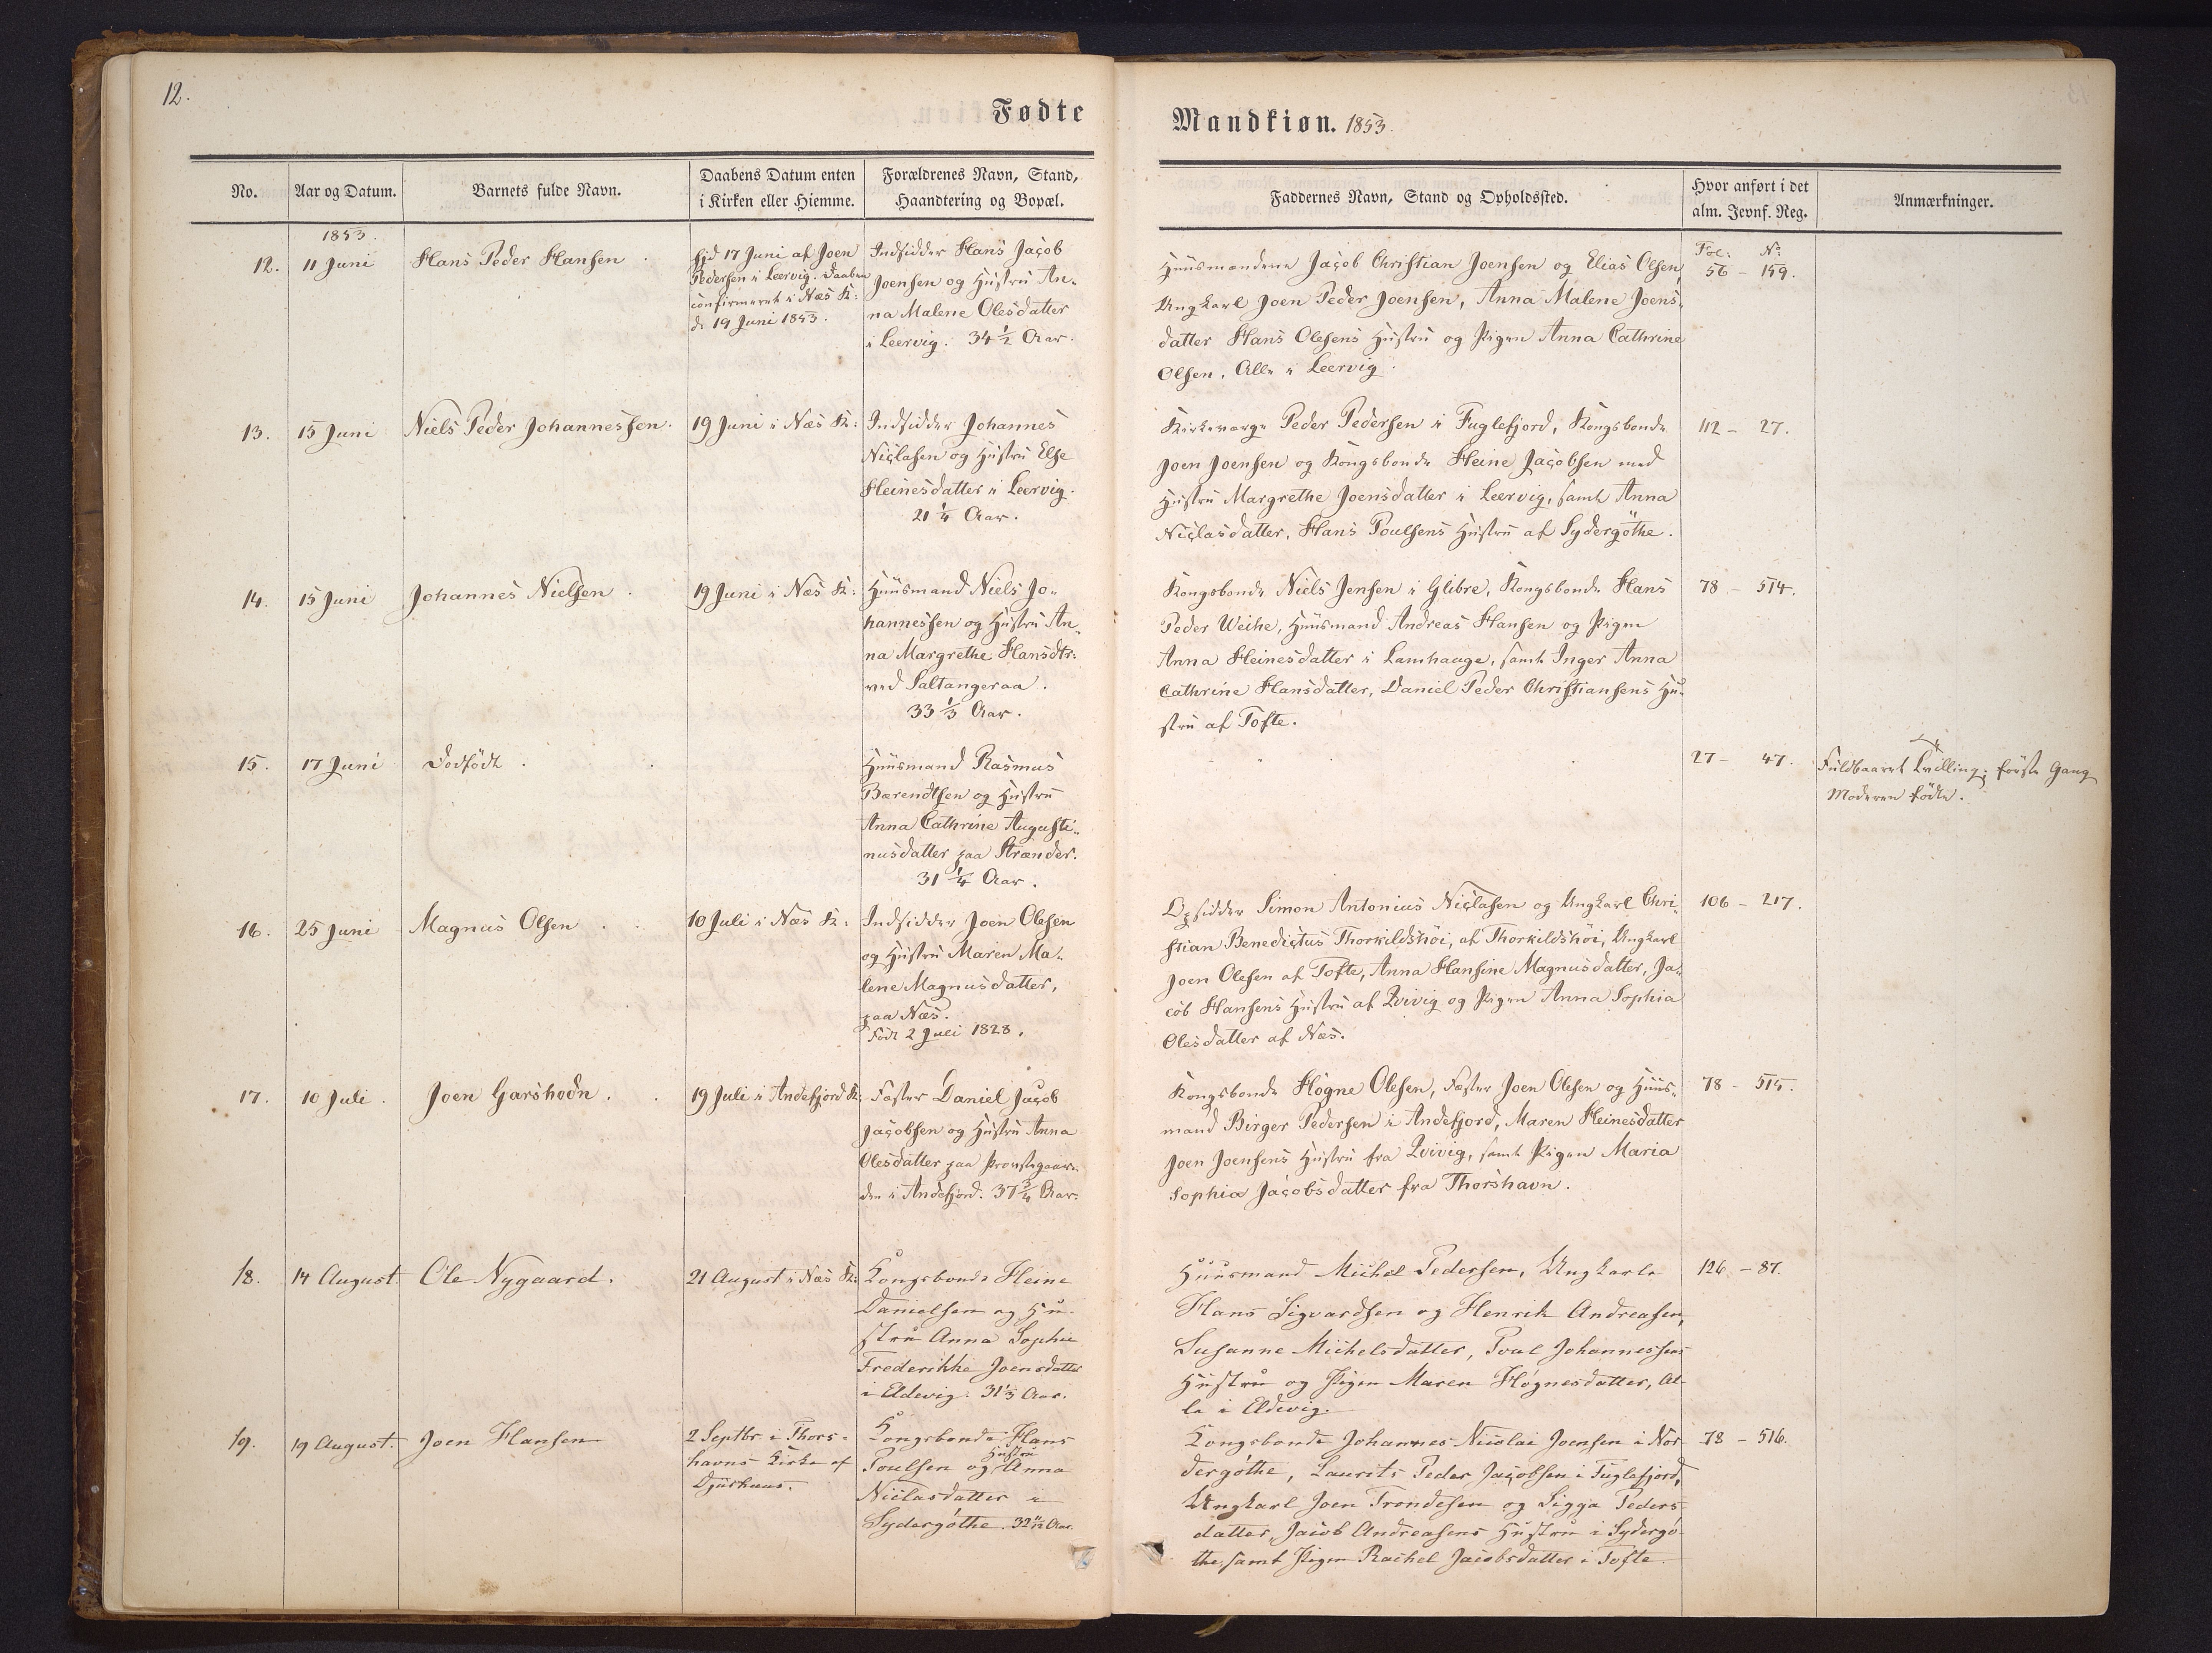 12.
Fødte
No.
Aar og Datum.
Barnets fulde Navn.
Daabens Datum enten
i Kirken eller Hiemme.
Forældrenes Navn, Stand,
Haandtering og Bopæl.
1853.
12.
11 Juni
Hans Peder Hansen.
hjd 17 Juni af Joen
Pedersen i Leervig. Daaben
confirmeret i Næs K:
d. 19 Juni 1853.
Indsidder Hans Jacob
Joensen og Hustru An-
na Malene Olesdatter
i Leervig. 34 1/2 Aar.
13.
15 Juni
Niels Peder Johannessen.
19 Juni i Næs K:
Indsidder Johannes
Niclasen og Hustru Else
Heinesdatter i Leervig.
21 1/4 Aar.
14.
15 Juni
Johannes Nielsen.
19 Juni i Næs K:
Huusmand Niels Jo-
hannessen og Hustru An-
na Margrethe Hansdtr.
ved Saltangeraa.
33 1/3 Aar.
15.
17 Juni
Dödfödt.
Huusmand Rasmus
Bærendtsen og Hustru
Anna Cathrine Augusti-
nusdatter paa Strænder.
31 1/4 Aar.
16.
25 Juni
Magnus Olsen.
10 Juli i Næs K:
Indsidder Joen Olesen
og Hustru Maren Ma-
lene Magnusdatter,
paa Næs.
Födt 2 Juli 1828.
17.
10 Juli.
Joen Garshodn.
19 Juli i Andefjord K:
Fæster Daniel Jacob
Jacobsen og Hustru Anna
Olesdatter paa Provstegaar-
den i Andefjord. 37 3/4 Aar.
18.
14 August.
Ole Nygaard.
21 August i Næs K:
Kongsbonde Heine
Danielsen og Hu-
stru Anna Sophie
Frederikke Joensdatter
i Eldevig. 31 1/3 Aar.
19.
19 August.
Joen Hansen
2 Septbr. i Thors-
havns Kirke af
Djurhuus.
Kongsbonde Hans
Poulsen og Hustru Anna
Niclasdatter i
Sydergöthe. 32 Aar.
Mandkiøn. 1853.
Faddernes Navn, Stand og Opholdssted.
Hvor anført i det
alm. Jevnf. Reg.
Anmærkninger.
Fol: No
Huusmændene Jacob Christian Joensen og Elias Olsen,
Ungkarl Joen Peder Joensen, Anna Malene Joens-
datter Hans Olesens Hustru og Pigen Anna Cathrine
Olsen, Alle i Leervig.
56 - 159.
Kirkeværge Peder Pedersen i Fuglefjord, Kongsbonde
Joen Joensen og Kongsbonde Heine Jacobsen med
Hustru Margrethe Joensdatter i Leervig, samt Anna
Niclasdatter, Hans Poulsens Hustru af Sydergöthe.
112 - 27.
Kongsbonde Niels Jensen i Glibre, Kongsbonde Hans
Peder Weihe, Huusmand Andreas Hansen og Pigen
Anna Heinesdatter i Lamhauge, samt Inger Anna
Cathrine Hansdatter, Daniel Peder Christiansens Hu-
stru af Tofte.
78 - 514.
27 - 47.
Fuldbaaret Tvilling; förste Gang
Moderen födte.
Opsidder Simon Antonius Niclasen og Ungkarl Chri-
stian Benedictus Thorkildshöi, af Thorkildshöi, Ungkarl
Joen Olesen af Tofte, Anna Hansine Magnusdatter, Ja-
cob Hansens Hustru af Qvivig og Pigen Anna Sophia
Olesdatter af Næs.
106 - 217.
Kongsbonde Högne Olesen, Fæster Joen Olesen og Huus-
mand Birger Pedersen i Andefjord, Maren Heinesdatter
Joen Joensens Hustru fra Qvivig, samt Pigen Maria
Sophia Jacobsdatter fra Thorshavn.
78 - 515.
Huusmand Michel Pedersen, Ungkarle
Hans Sigvardsen og Henrik Andreasen,
Susanne Michelsdatter, Poul Johannessens
Hustru og Pigen Maren Høgnesdatter, Al-
le i Eldevig.
126. - 87.
Kongsbonde Johannes Nicolai Joensen i Nor-
dergöthe, Laurits Peder Jacobsen i Fuglefjord,
Ungkarl Joen Trondesen og Sigga Peders-
datter, Jacob Andreasens Hustru i Sydergö-
the, samt Pigen Rachel Jacobsdatter i Tofte.
78 - 516.